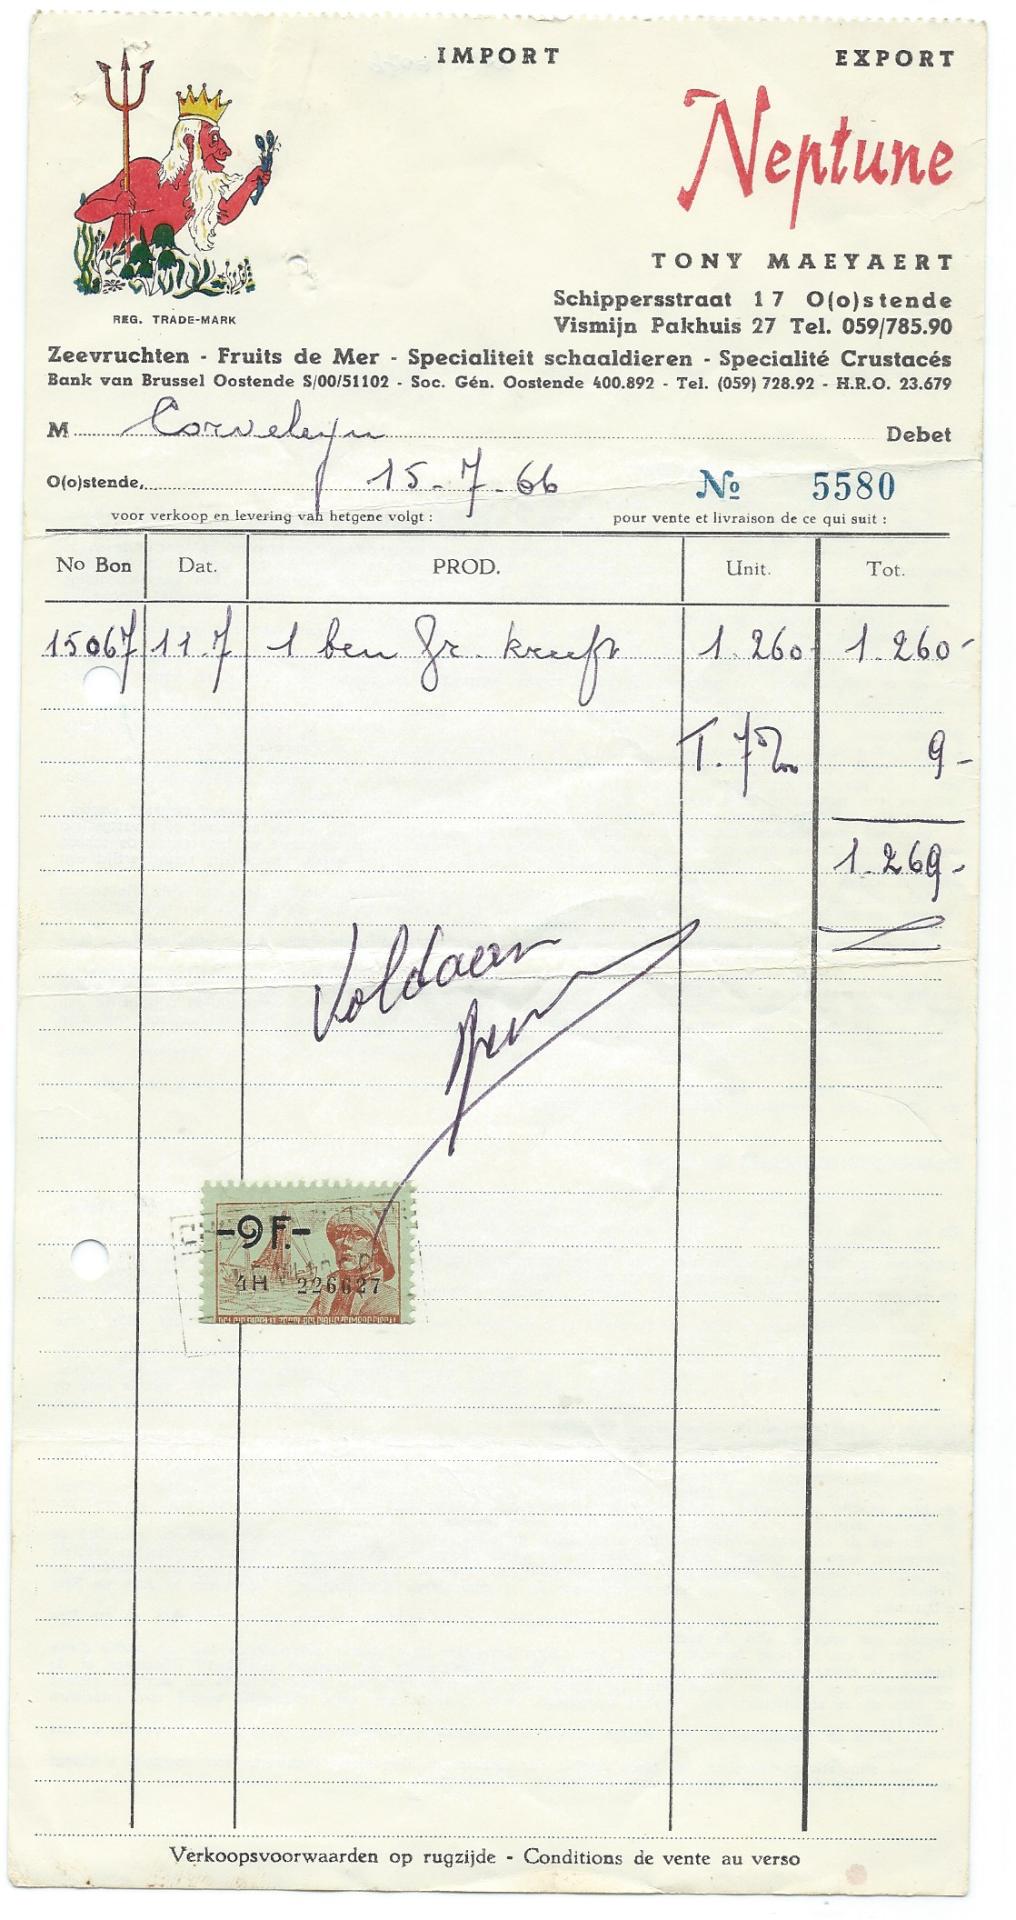 IMPORT EXPORT
Neptune
TONY MAEYAERT
REG. TRADE-MARK
Schippersstraat 17 O(o)stende
Vismijn Pakhuis 27 Tel. 059/785.90
Zeevruchten - Fruits de Mer - Specialiteit schaaldieren - Specialité Crustacés
Bank van Brussel Oostende S/00/51102 - Soc. Gén. Oostende 400.892 - Tel. (059) 728.92 - H.R.O. 23.679
M Corveleyn Debet
O(o)stende, 15-7-66 No 5580
voor verkoop en levering van hetgene volgt : pour vente et livraison de ce qui suit :
No Bon Dat. PROD. Unit. Tot.
15067 11.7 1 ben gr. kreeft 1.260 1.260-
T. 7‰ 9-
1.269-
Voldaan
-9F.-
4H 226627
Verkoopsvoorwaarden op rugzijde - Conditions de vente au verso